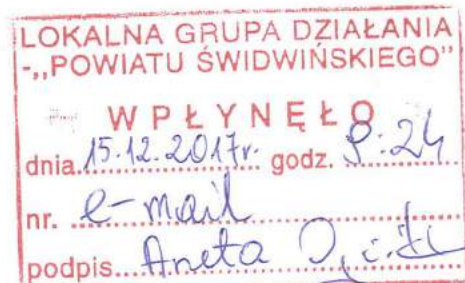 LOKALNA GRUPA DZIAŁANIA
-„POWIATU ŚWIDWIŃSKIEGO”
WPŁYNĘŁO
dnia 15.12.2017r. godz. 9:24
nr. e-mail
podpis... Aneta